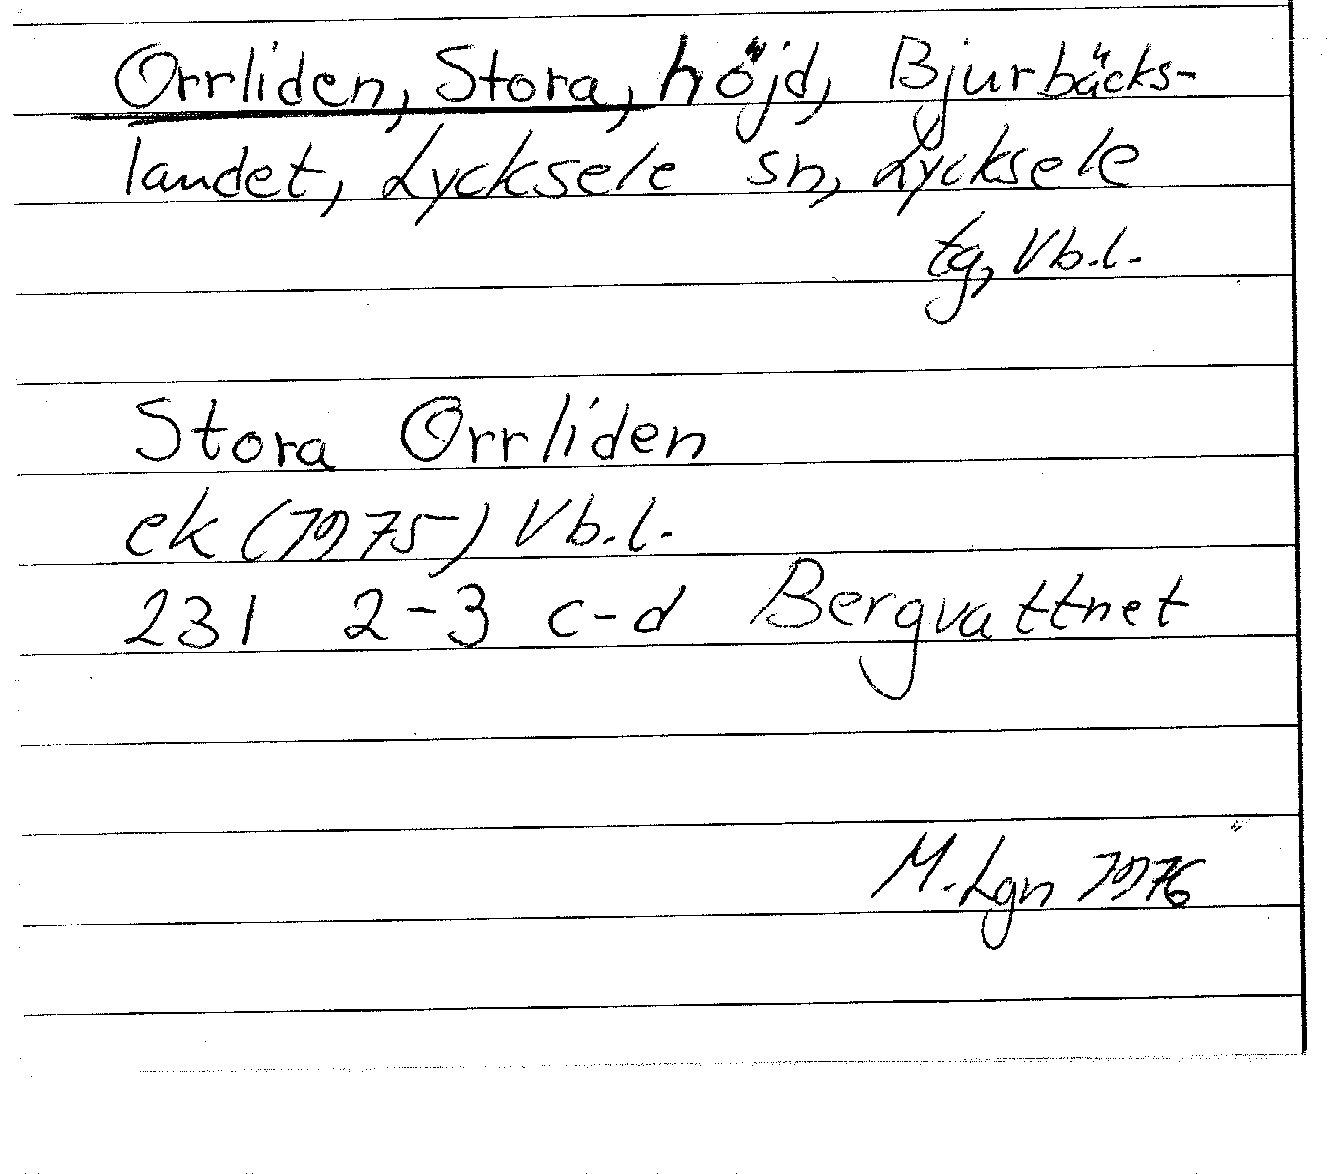 Orrliden, Stora, höjd, Bjurbäcks-
landet, Lycksele sn, Lycksele
tg, Vb.l.
Stora Orrliden
ek (1975) Vb.l.
231 2-3 c-d Bergvattnet
M. Lgn 1976